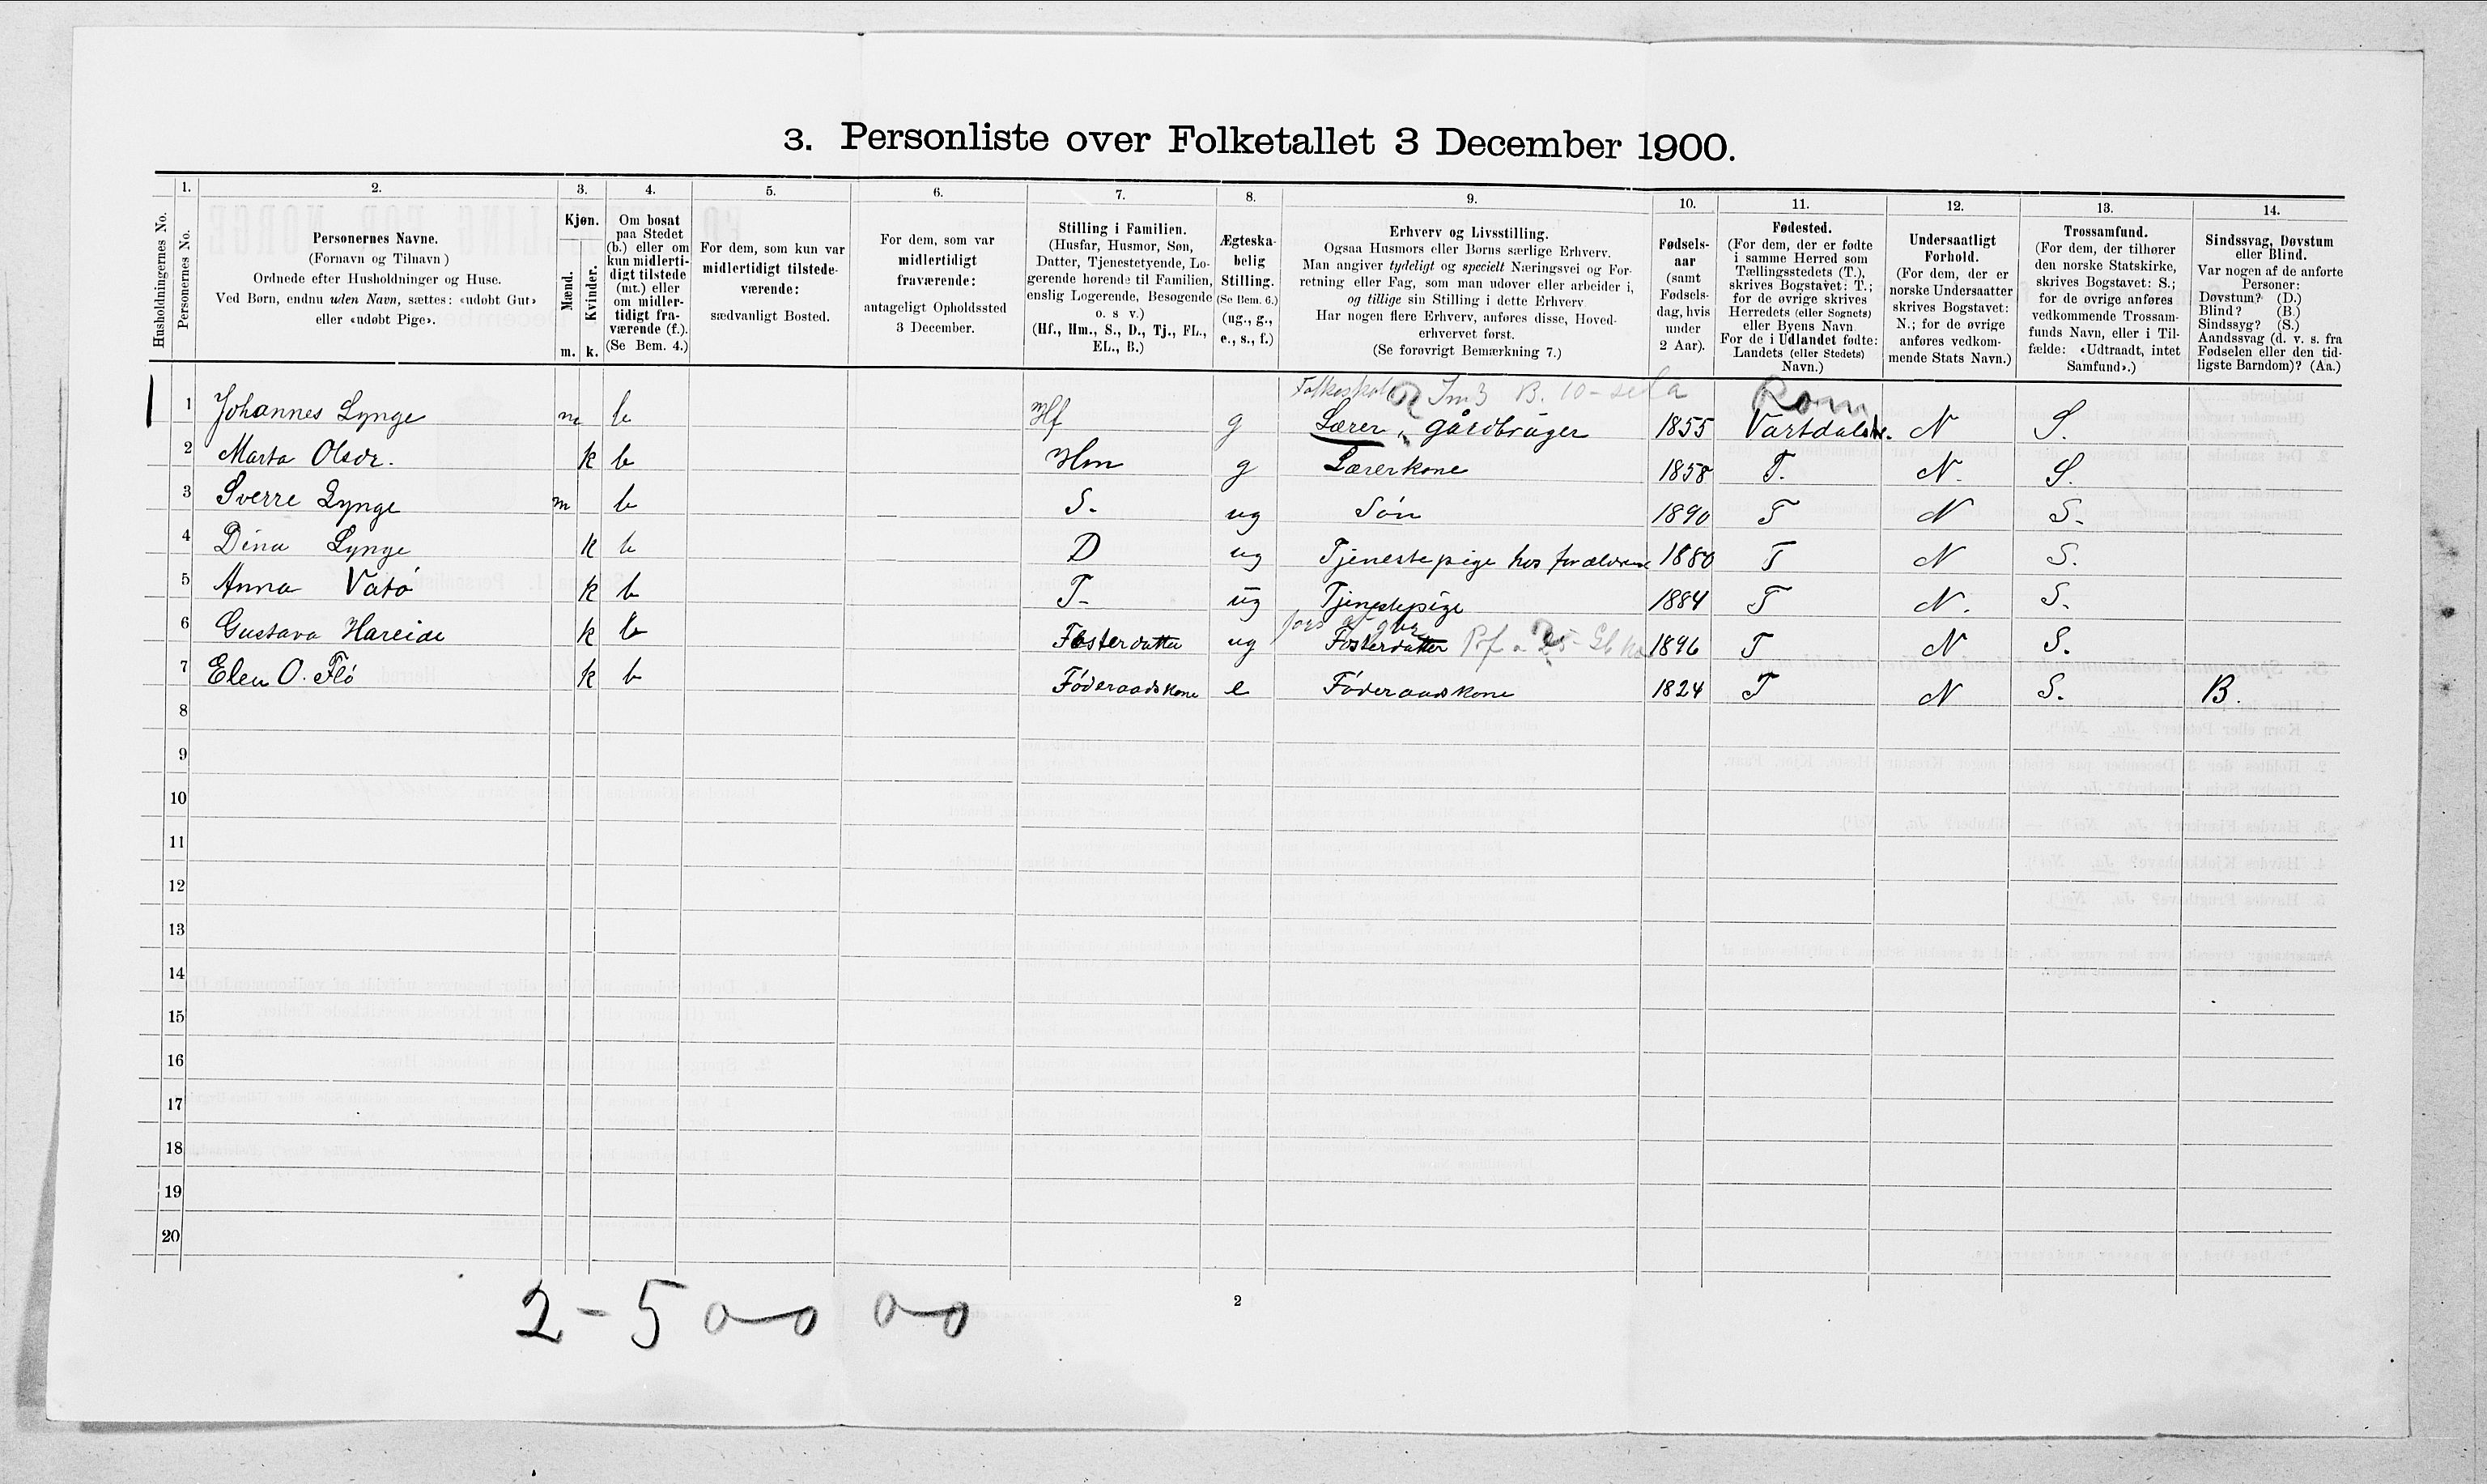 3. Personliste over Folketallet 3 December 1900.
Husholdningernes No.
1.
Personernes No.
2.
Personernes Navne.
(Fornavn og Tilnavn)
Ordnede efter Husholdninger og Huse.
Ved Børn, endnu uden Navn, sættes: «udøbt Gut»
eller «udøbt Pige».
3.
Kjøn.
Mænd.
Kvinder.
m. k.
4.
Om bosat
paa Stedet
(b.) eller om
kun midlerti-
digt tilstede
(mt.) eller
om midler-
tidigt fra-
værende (f.).
(Se Bem. 4.)
5.
For dem, som kun var
midlertidigt tilstede-
værende:
sædvanligt Bosted.
6.
For dem, som var
midlertidigt
fraværende:
antageligt Opholdssted
3 December.
7.
Stilling i Familien.
(Husfar, Husmor, Søn,
Datter, Tjenestetyende, Lo-
gerende hørende til Familien,
enslig Logerende, Besøgende
o. s v.)
(Hf., Hm., S., D., Tj., FL.,
EL., B.)
8.
Ægteska-
belig
Stilling.
(Se Bem. 6.)
(ug., g.,
e., s., f.)
9.
Erhverv og Livsstilling.
Ogsaa Husmors eller Børns særlige Erhverv.
Man angiver tydeligt og specielt Næringsvei og For-
retning eller Fag, som man udøver eller arbeider i,
og tillige sin Stilling i dette Erhverv
Har nogen flere Erhverv, anføres disse, Hoved-
erhvervet først.
(Se forøvrigt Bemærkning 7.)
10.
Fødsels-
aar
(samt
Fødsels-
dag, hvis
under
2 Aar).
11.
Fødested.
(For dem, der er fødte
i samme Herred som
Tællingsstedets (T.),
skrives Bogstavet: T.;
for de øvrige skrives
Herredets (eller Sognets)
eller Byens Navn
For de i Udlandet fødte:
Landets (eller Stedets)
Navn.)
12.
Undersaatligt
Forhold.
(For dem, der er
norske Undersaatter
skrives Bogstavet:
N.; for de øvrige
anføres vedkom-
mende Stats Navn.)
13.
Trossamfund.
(For dem, der tilhører
den norske Statskirke,
skrives Bogstavet: S.;
for de øvrige anføres
vedkommende Trossam-
funds Navn, eller i Til-
fælde: «Udtraadt, intet
Samfund».)
14.
Sindssvag, Døvstum
eller Blind.
Var nogen af de anførte
Personer:
Døvstum? (D.)
Blind? (B.)
Sindssyg? (S.)
Aandssvag (d. v. s. fra
Fødselen eller den tid-
ligste Barndom)? (Aa.)
Folkeskole
Rom
1 Johannes Lynge m b Hf g Lærer, gårdbruger 1855 Vartdalstr. N S.
2 Marta Olsdr. k b Hm g Lærerkone 1858 T. N. S.
3 Sverre Lynge m b S. ug Søn 1890 T N S.
4 Dina Lynge k b D ug Tjenestepige hos forældrene 1880 T N S.
5 Anna Vatø k b T- ug Tjenestepige 1884 T N. S.
6 Gustava Hareide k b Fosterdatter ug Fosterdatter 1896 T N S.
7 Elen O. Flø k b Føderaadskone e Føderaadskone 1824 T N S. B.
8
9
10
11
12
13
14
15
16
17
18
19
20
2
2 - 5 0-0 0-0